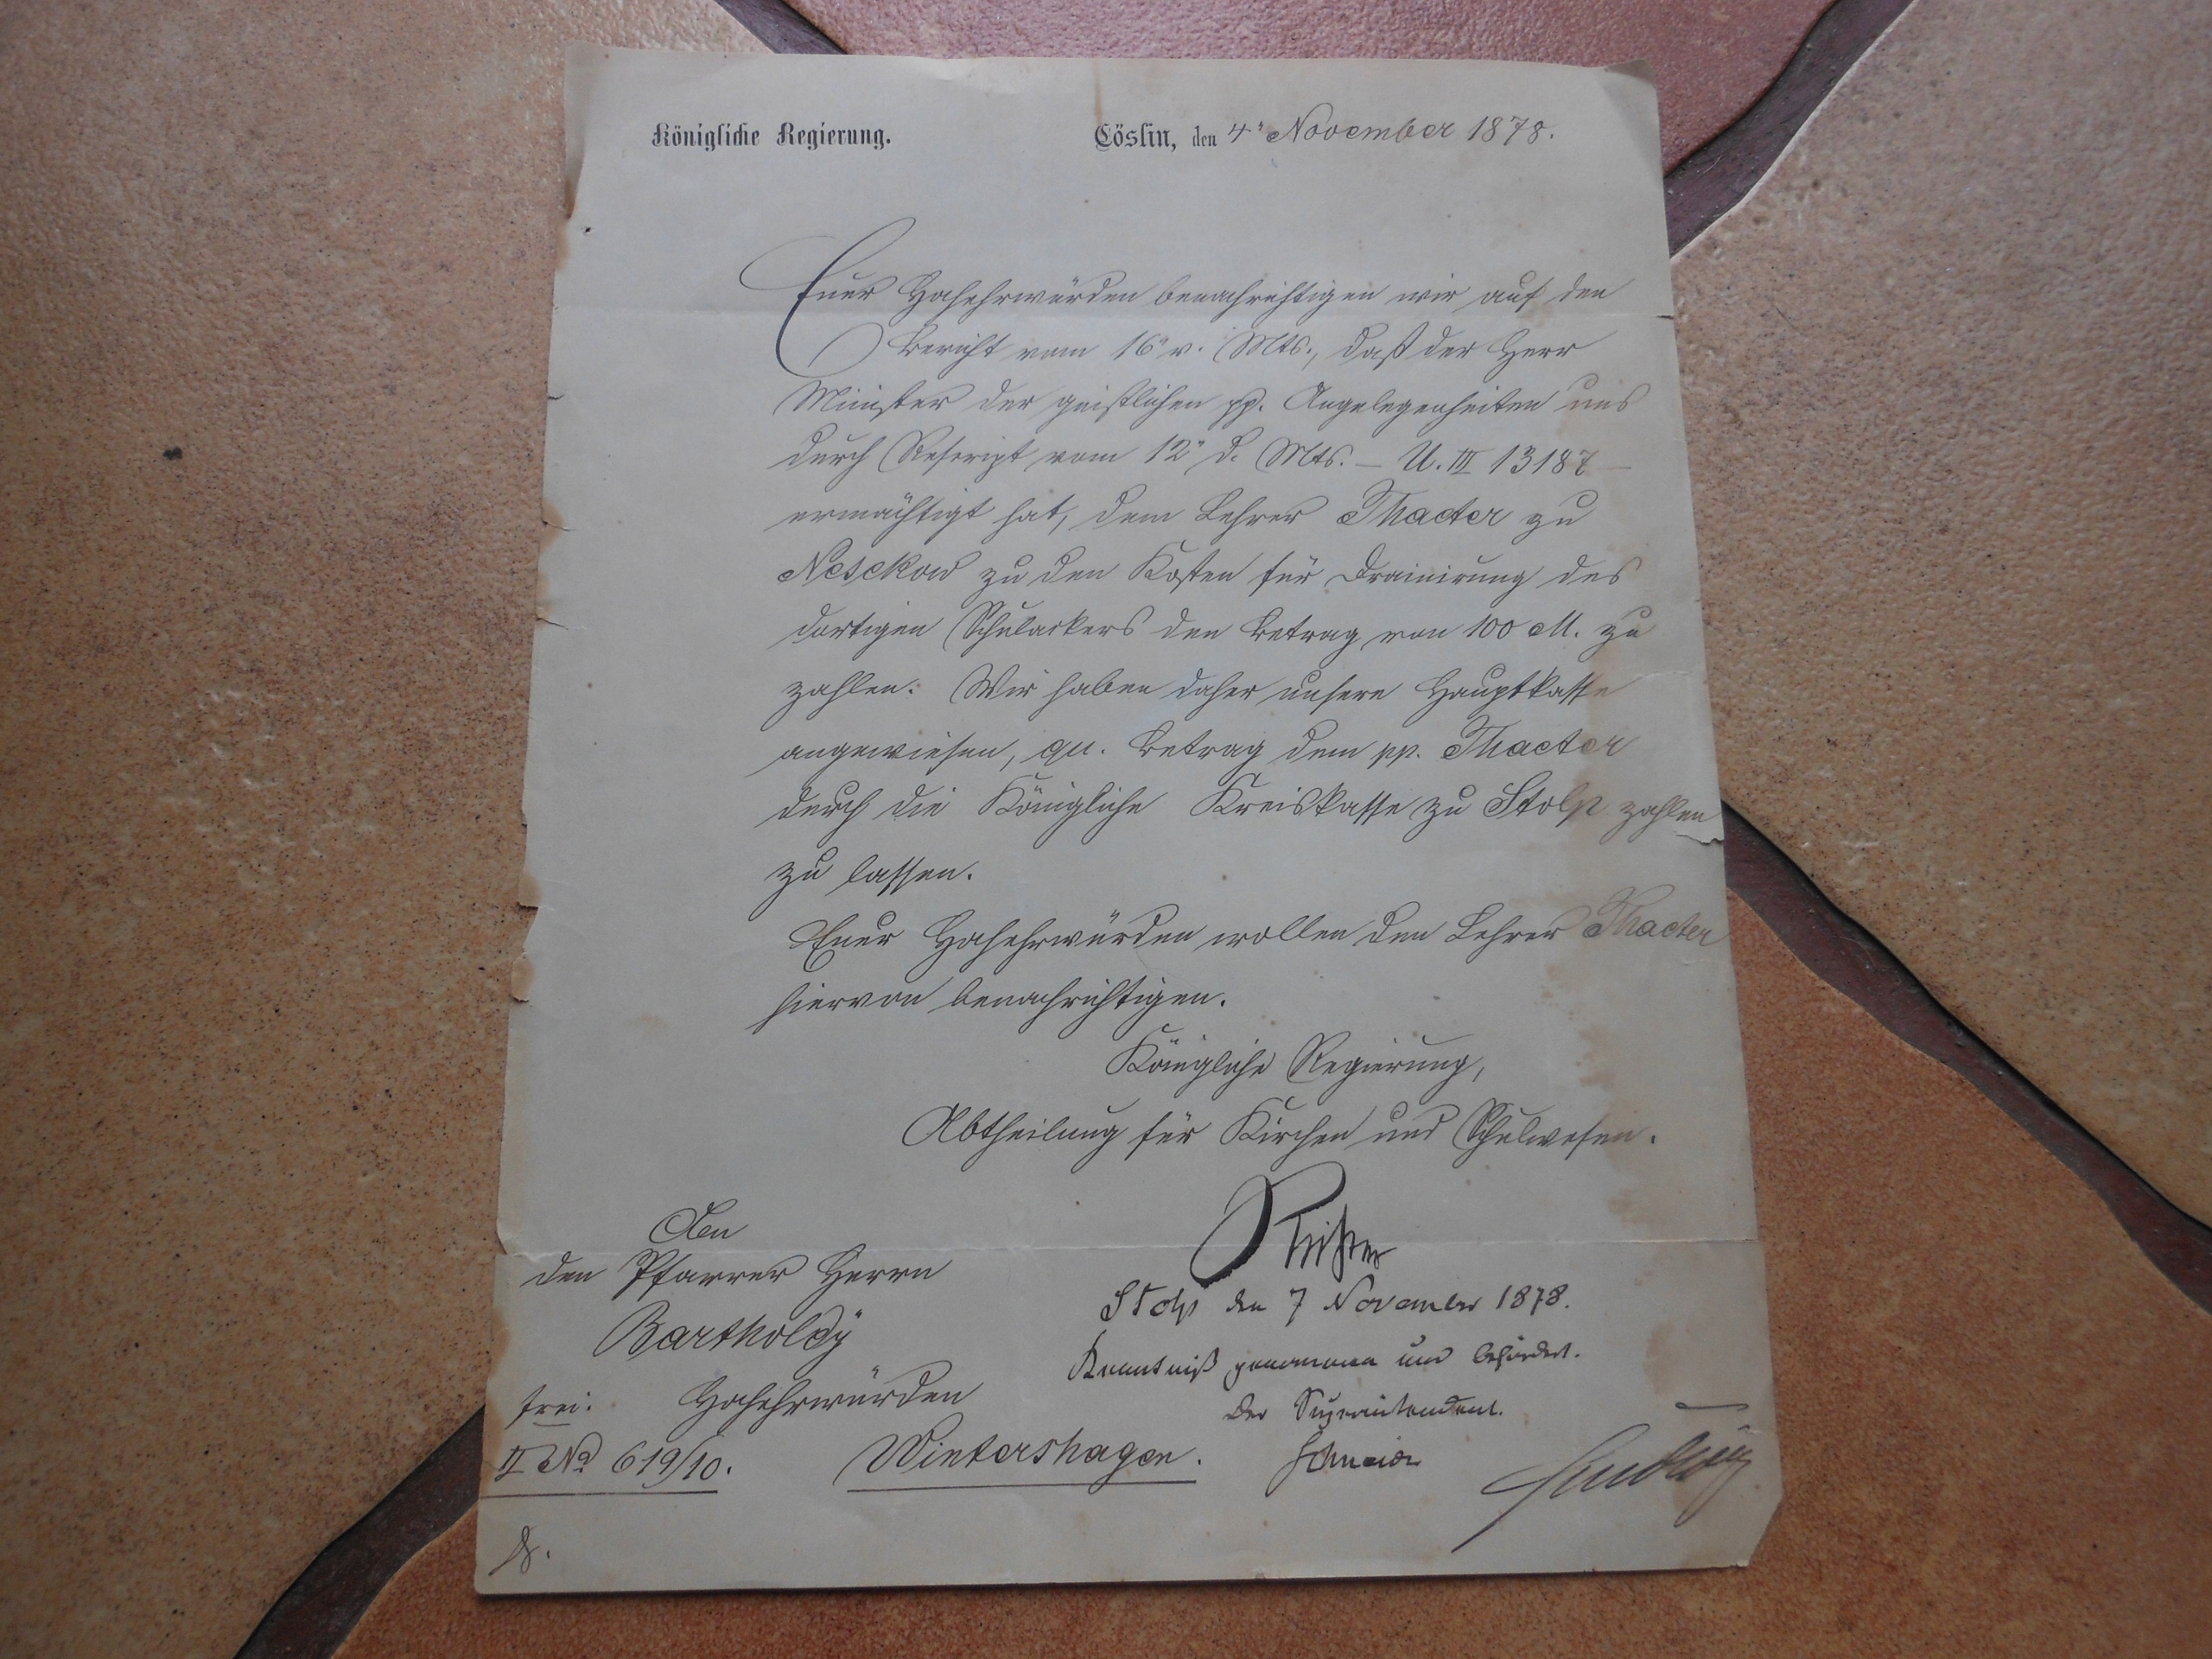 Königliche Regierung.
Cöslin, den 4n November 1878.
Euer Hochehrwürden benachrichtigen wir auf den
Bericht vom 16n v. Mts., daß der Herr
Minister der geistlichen pp. Angelegenheiten uns
durch Rescript vom 12n d. Mts. – U. III 13187 –
ermächtigt hat, dem Lehrer Thacter zu
Nesekow zu den Kosten für Drainirung des
dortigen Schulackers den Betrag von 100 M. zu
zahlen. Wir haben daher unsere Hauptkasse
angewiesen, qu. Betrag dem pp. Thacter
durch die Königliche Kreiskasse zu Stolp zahlen
zu lassen.
Euer Hochehrwürden wollen den Lehrer Thacter
hiervon benachrichtigen.
Königliche Regierung,
Abtheilung für Kirchen und Schulwesen.
An
den Pfarrer Herrn
Bartholdÿ
frei. Hochehrwürden
II No 619/10. Wintershagen.
Stolp den 7 November 1878.
Kenntniß genommen und befördert.
Der Superintendent.